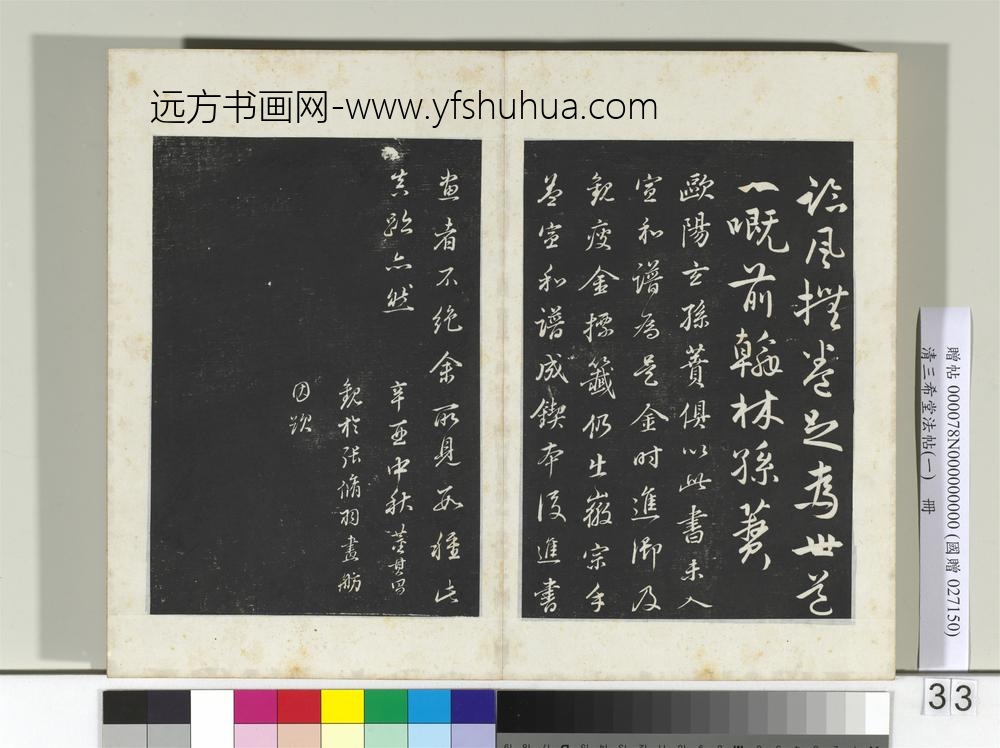 远方书画网-www.yfshuhua.com
論風撫卷足為世道
一嘅前翰林孫蕡
歐陽玄孫蕡俱以此書未入
宣和譜為是金時進御及
觀瘦金標籤仍出徽宗手
蓋宣和譜成鍥本後進書
畫者不絕余所見數種此
真跡亦然
辛亥中秋董其昌
觀於張脩羽畫舫
因題
贈帖 000078N000000000 (國贈 027150)
清三希堂法帖(一) 冊
33